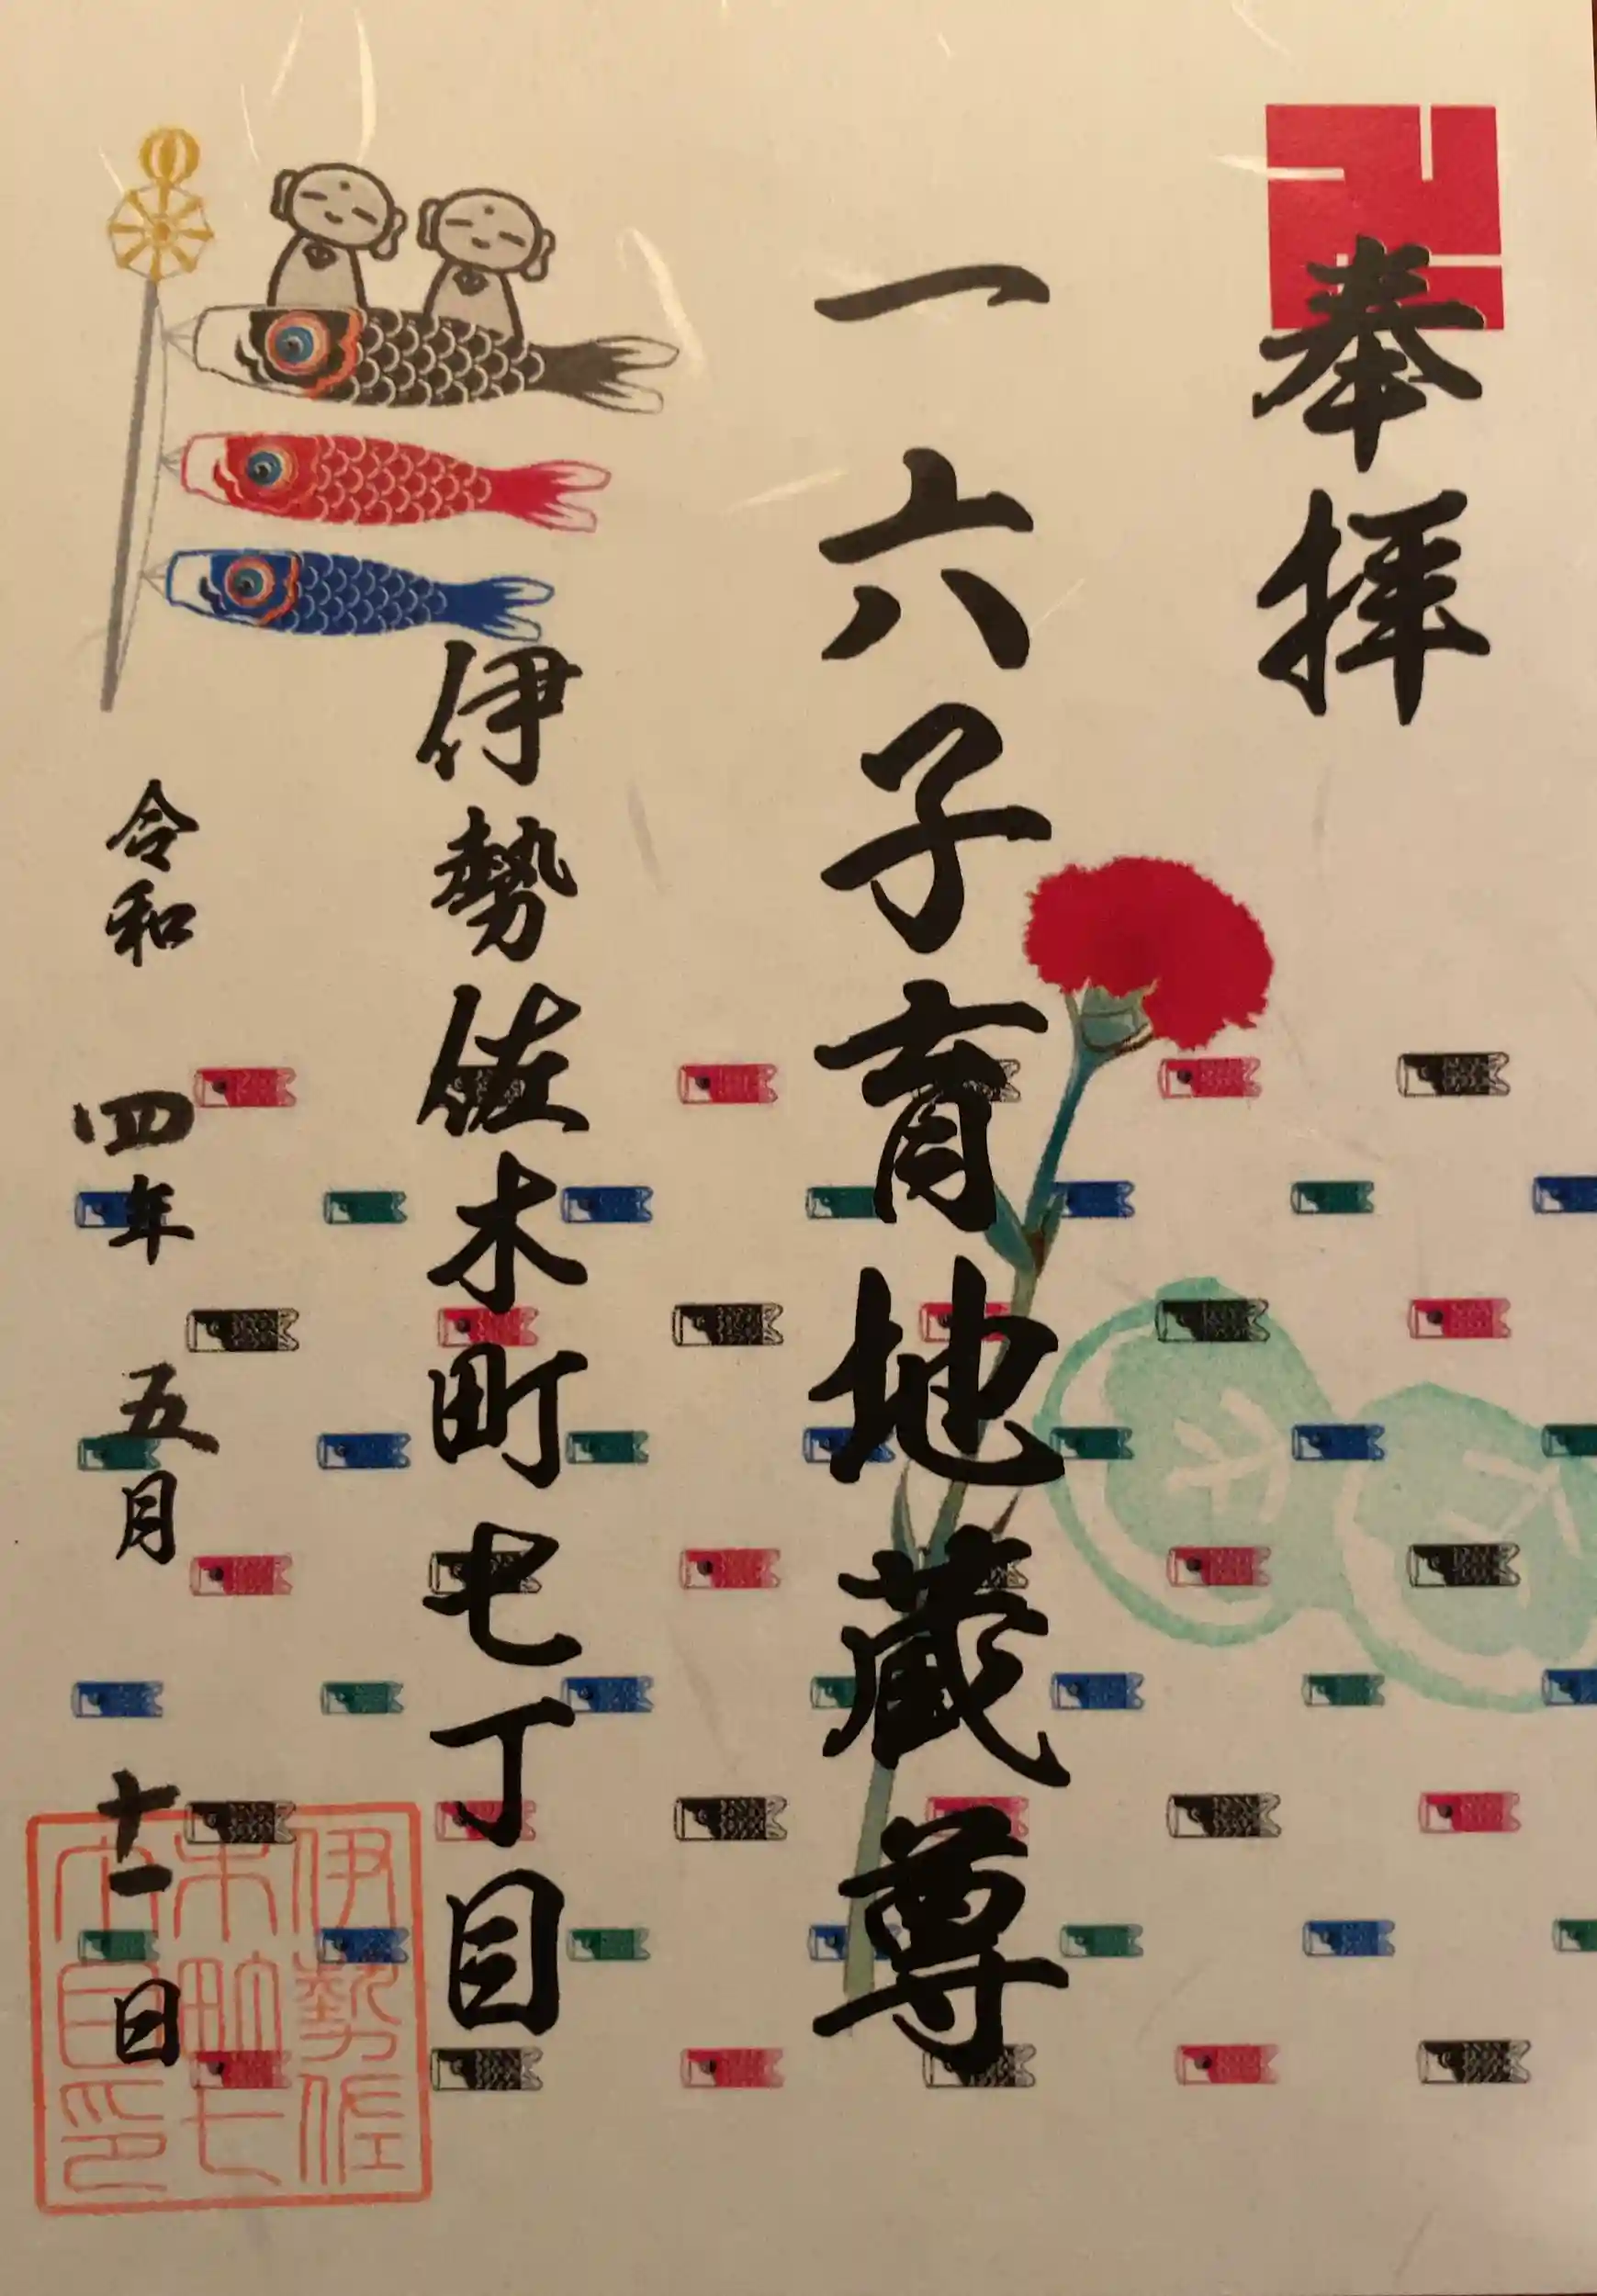 奉拝
一六子育地蔵尊
伊勢佐木町七丁目
令和四年五月十一日
伊勢佐
木町七
丁目印